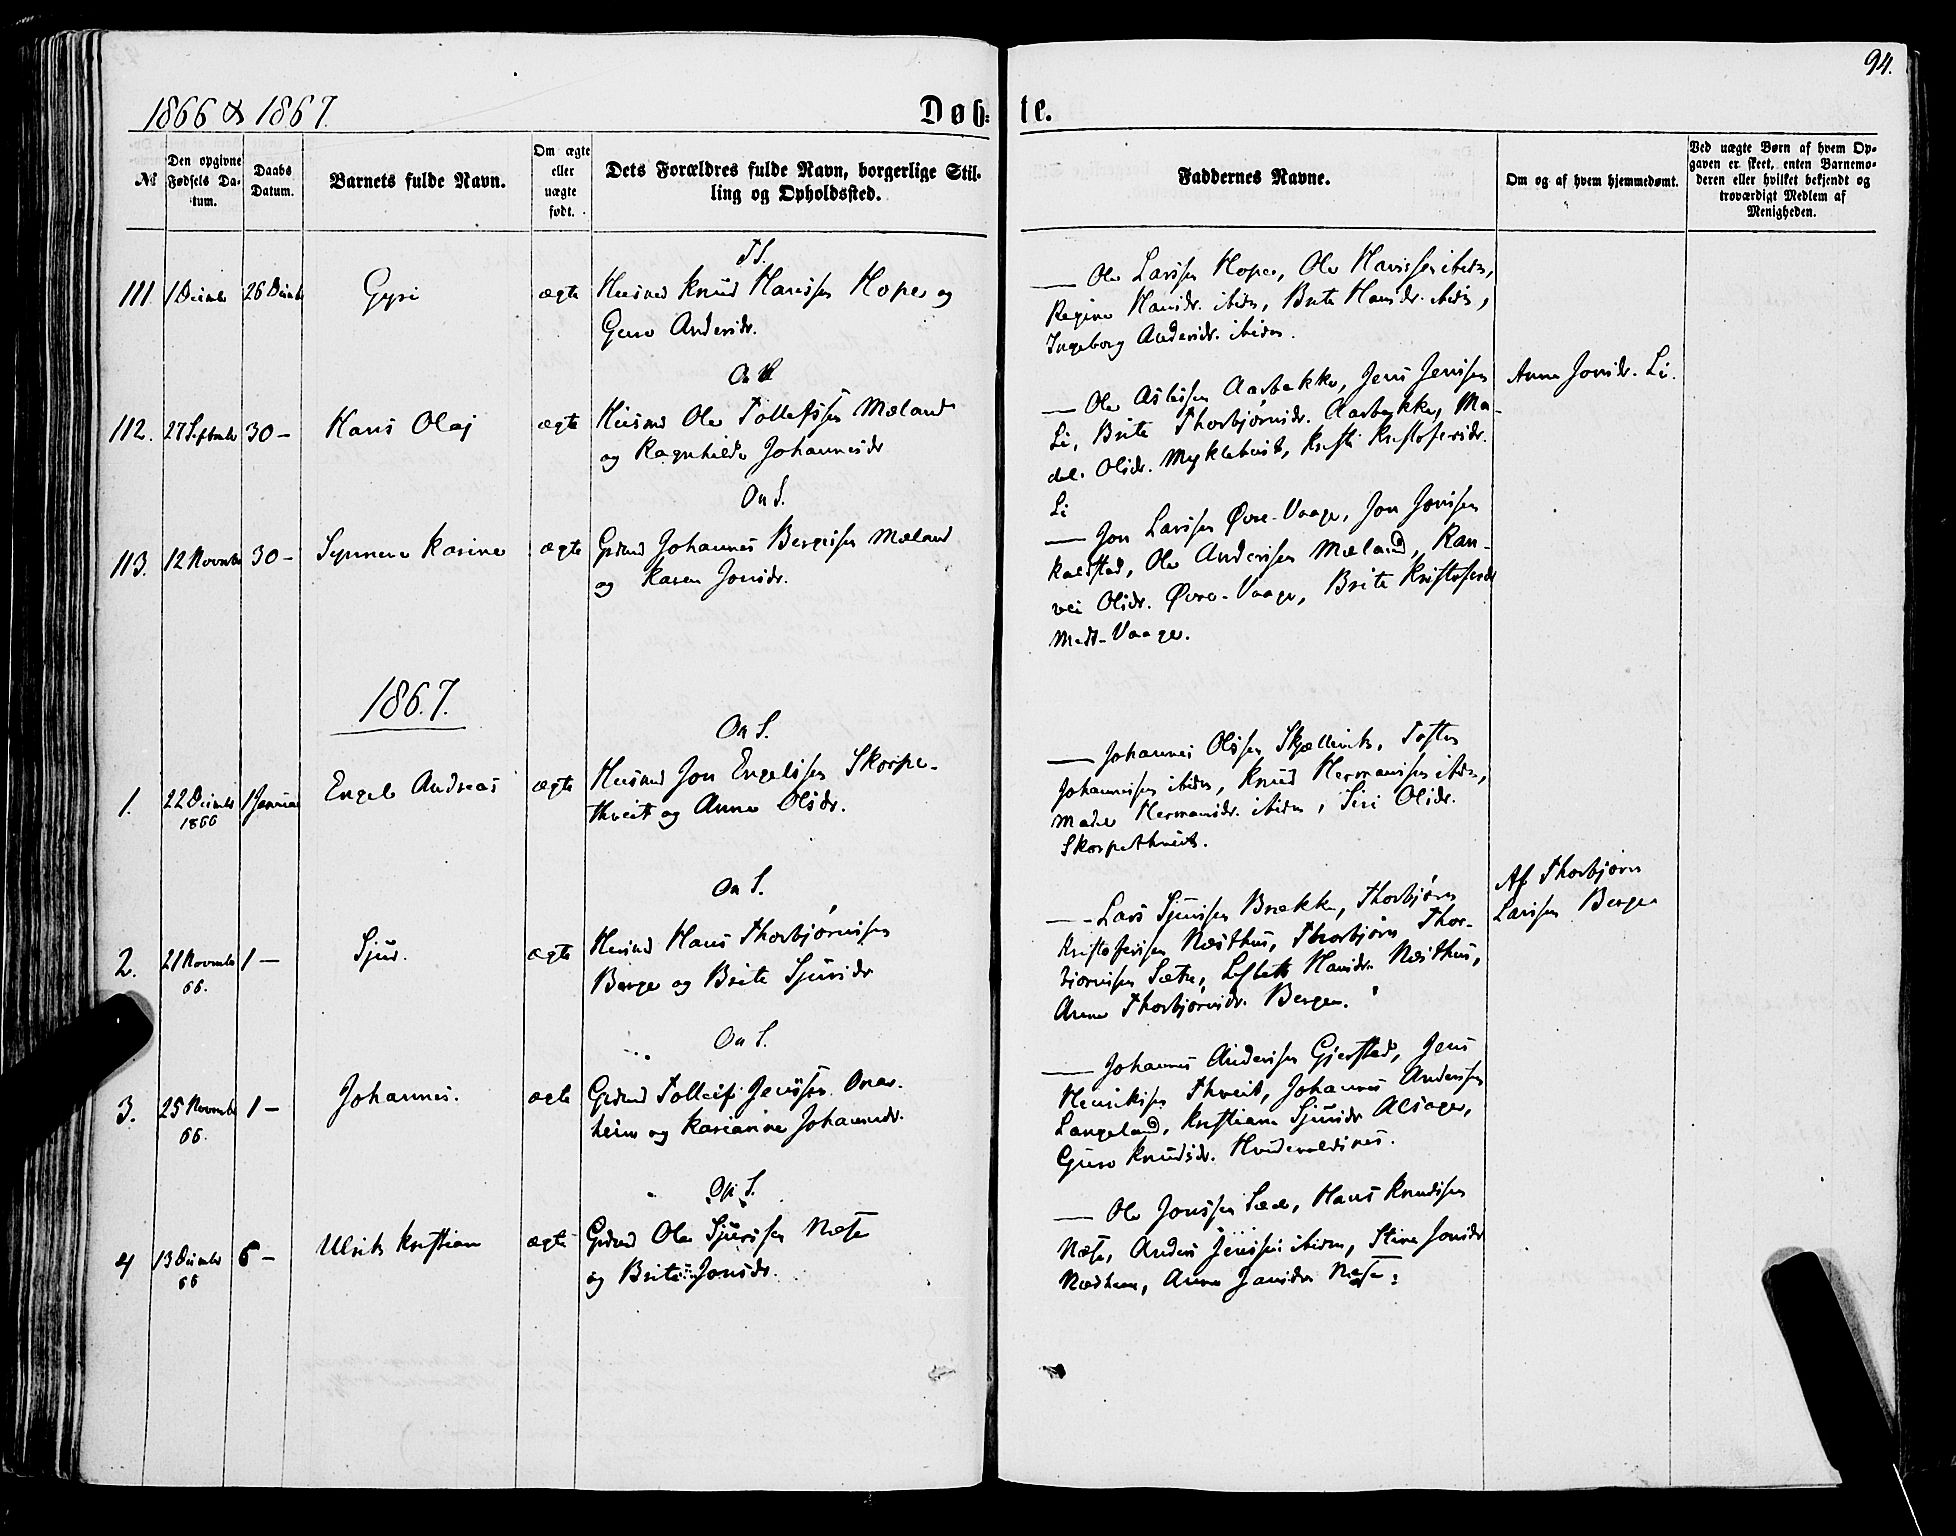 94.
1866 & 1867.
Døb- te.
№
Den opgivne Fødsels Datum.
Daabs Datum.
Barnets fulde Navn.
Om ægte eller uægte født.
Dets Forældres fulde Navn, borgerlige Stilling og Opholdssted.
Faddernes Navne.
Om og af hvem hjemmedømt.
Ved uægte Børn af hvem Opgaven er skeet, enten Barnemoderen eller hvilket bekjendt og troværdigt Medlem af Menigheden.
111. 1 Decimb 26 Decimb Gyri ægte
Husmd Knud Hanssen Hope og
Guro Andersdr.
— Ole Larssen Hope, Ole Hanssen ibidm,
Regine Hansdr. ibidm, Brite Hansdr. ibidm,
Ingeborg Andersdr. ibidm.
112. 27 Septmb 30 – Hans Olaj ægte
Husmd Ole Tollefssen Mæland
og Ragnhilde Johannesdr
— Ole Aslessen Aarbakke, Jens Jenssen
Li, Brite Thorbjørnsdr. Aarbakke, Ma-
del. Olsdr. Myklebust, Kristi Kristofersdr.
Li
Anne Jonsdr. Li.
113. 12 Novmb 30 – Synneve Karine ægte
On S.
Grdmd Johannes Bergessen Mæland
og Karen Jonsdr.
— Jon Larssen Øvre-Vaage, Jon Jonssen
Kaldstad, Ole Anderssen Mæland, Ran-
vei Olsdr. Øvre-Vaage, Brite Kristofersdr
Midt-Vaage.
1867.
1. 22 Decimb 1866 1 Januar Engel Andreas ægte
On S.
Husmd Jon Engelssen Skorpe-
thveit og Anne Olsdr.
— Johannes Olssen Skjellevik, Tosten
Johannessen ibidm, Knud Hermanssen ibidm,
Madel Hermansdr. ibidm, Siri Olsdr.
Skorpethveit.
2. 21 Novmb 66. 1 – Sjur. ægte
On S.
Husmd Hans Thorbjørnssen
Berge og Brite Sjursdr
— Lars Sjurssen Brekke, Thorbjørn
Kristofersen Næsthus, Thorbjørn Thor-
bjørnssen Sætre, Lisbeth Hansdr. Næsthus,
Anne Thorbjørnsdr. Bergen.
Af Thorbjørn
Larssen Berge
3. 25 Novmb 66. 1 – Johannes. ægte
On S.
Grdmd Tolleif Jenssen Onar-
heim og Karianne Johannsdr.
— Johannes Anderssen Gjerstad, Jens
Henrikssen Thveit, Johannes Anderssen
Langeland, Kristiane Sjursdr Alsager,
Guro Knudsdr. Hovdevaldsnes.
4 13 Decmb 66 6 – Ulrik Kristian ægte
Grdmd Ole Sjurssen Næse
og Brite Jonsdr.
— Ole Jonssen Sæd, Hans Knudssen
Næse, Anders Jenssen ibidm, Stine Jonsdr
Nedhem, Anne Jansdr Næse.